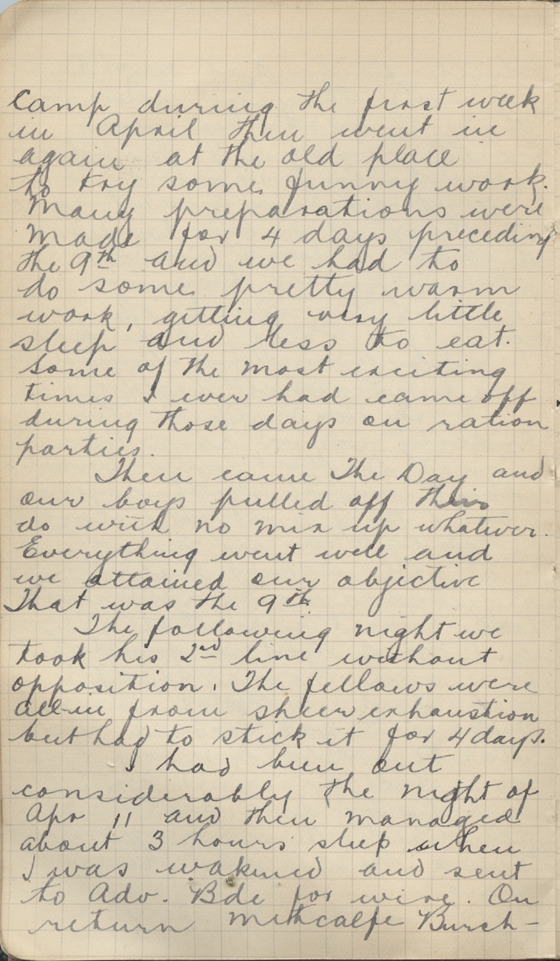 Camp during the first week
in April then went in
again at the old place
to try some funny work.
Many preparations were
made for 4 days preceding
the 9th and we had to
do some pretty warm
work, getting very little
sleep and less to eat.
Some of the most exciting
times I ever had came off
during those days on ration
parties.
Then came The Day and
our boys pulled off their
do with no mix up whatever.
Everything went well and
we attained our objective
That was the 9th.
The following night we
took his 2nd line without
opposition. The fellows were
all in from sheer exhaustion
but had to stick it for 4 days.
I had been out
considerably the night of
Apr 11 and then managed
about 3 hours sleep when
I was wakened and sent
to Adv. Bde for wire. On
return Methcalfe Burch-